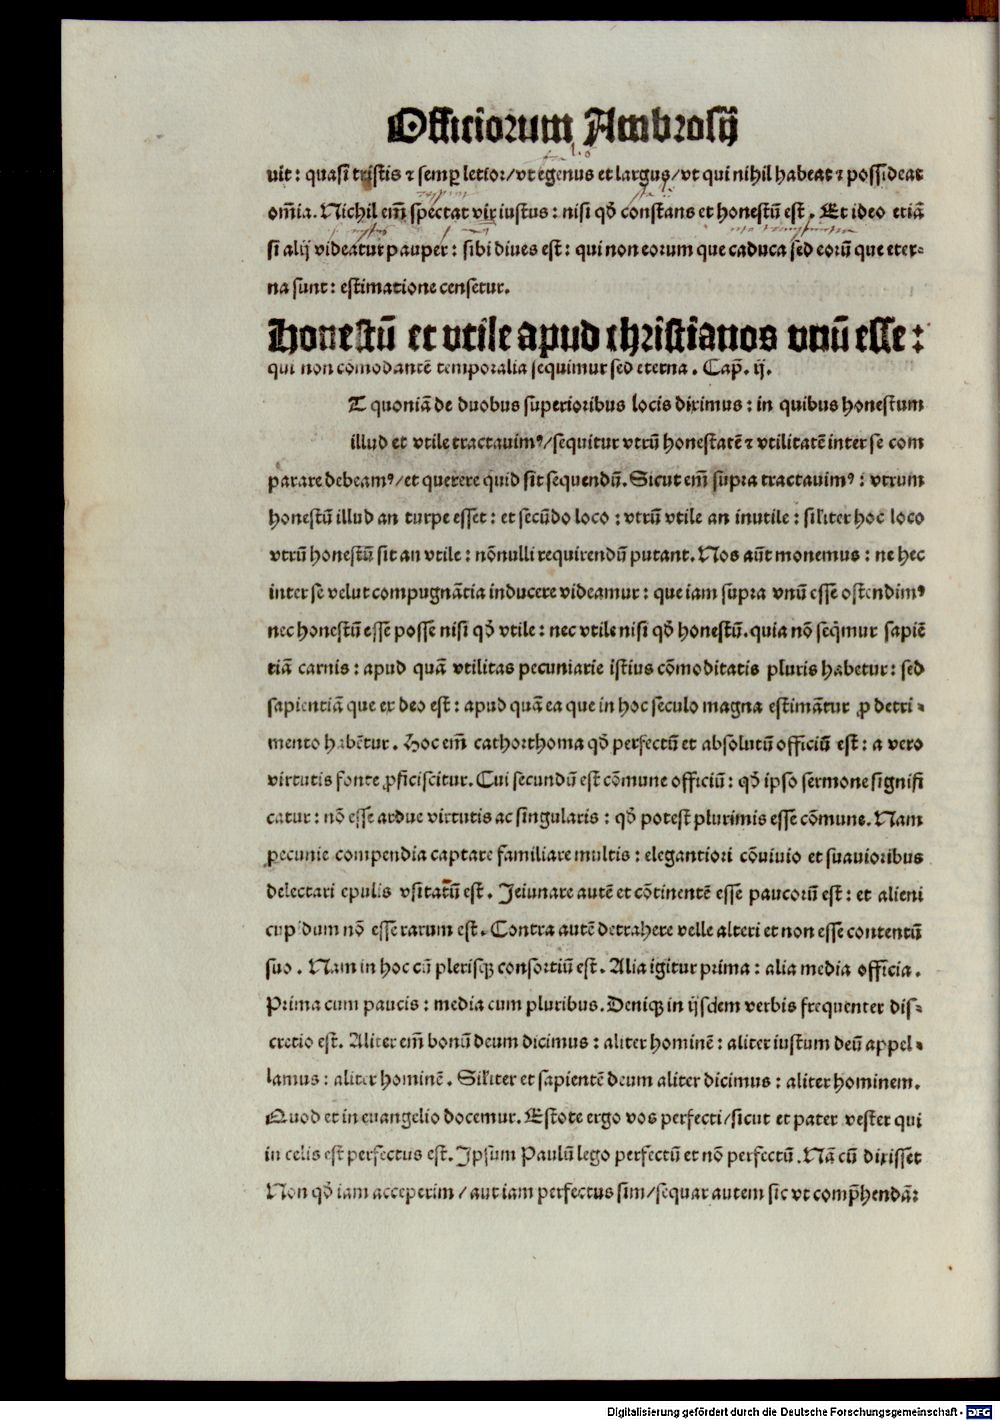 Officiorum Ambrosij
uit: quasi tristis ⁊ semꝑ letior/vt egenus et largus/vt qui nihil habeat ⁊ possideat
om̄ia. Nichil em̄ spectat vir iustus: nisi qd̄ constans et honestū est. Et ideo etiā
si alij videatur pauper: sibi diues est: qui non eorum que caduca sed eorū que eter⸗
na sunt: estimatione censetur.
Honestū et vtile apud christianos vnū esse:
qui non cōmodantē temporalia sequimur sed eterna. Cap̄. ij.
T quoniā de duobus superioribus locis diximus: in quibus honestum
illud et vtile tractauimꝰ/sequitur vtrū honestatē ⁊ vtilitatē inter se com
parare debeamꝰ/et querere quid sit sequendū. Sicut em̄ supra tractauimꝰ: vtrum
honestū illud an turpe esset: et secūdo loco: vtrū vtile an inutile: siliter hoc loco
vtrū honestū sit an vtile: nōnulli requirendū putant. Nos aūt monemus: ne hec
inter se velut compugnātia inducere videamur: que iam supra vnū esse ostendimꝰ
nec honestū esse posse nisi qd̄ vtile: nec vtile nisi qd̄ honestū. quia nō seq̄mur sapiē
tiā carnis: apud quā vtilitas pecuniarie istius cōmoditatis pluris habetur: sed
sapientiā que ex deo est: apud quā ea que in hoc seculo magna estimātur ꝓ detri⸗
mento habētur. Hoc em̄ cathorthoma qd̄ perfectū et absolutū officiū est: a vero
virtutis fonte ꝓficiscitur. Cui secundū est cōmune officiū: qd̄ ipso sermone signifi
catur: nō esse ardue virtutis ac singularis: qd̄ potest plurimis esse cōmune. Nam
pecunie compendia captare familiare multis: elegantiori cōuiuio et suauioribus
delectari epulis vsitatū est. Jeiunare autē et cōtinentē esse paucorū est: et alieni
cupidum nō esse rarum est. Contra autē detrahere velle alteri et non esse contentū
suo. Nam in hoc cū plerisqꝫ consortiū est. Alia igitur prima: alia media officia.
Prima cum paucis: media cum pluribus. Deniqꝫ in ijsdem verbis frequenter dis⸗
cretio est. Aliter em̄ bonū deum dicimus: aliter hominē: aliter iustum deū appel⸗
lamus: aliter hominē. Siliter et sapientē deum aliter dicimus: aliter hominem.
Quod et in euangelio docemur. Estote ergo vos perfecti/sicut et pater vester qui
in celis est perfectus est. Jpsum Paulū lego perfectū et nō perfectū. Nā cū dixisset
Non qd̄ iam acceperim/aut iam perfectus sim/sequar autem sic vt comp̄hendā:
Digitalisierung gefördert durch die Deutsche Forschungsgemeinschaft - DFG